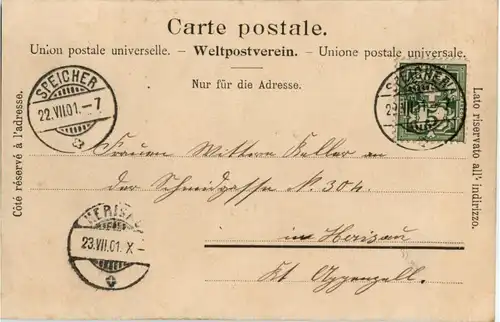 Carte postale.
Union postale universelle. – Weltpostverein. – Unione postale universale.
Nur für die Adresse.
Côté réservé à l'adresse.
Lato riservato all' indirizzo.
SPEICHER
22.VII.01.–7
23.VII.01
5
Frauen Wittwe Keller an
der Schmidgasse N. 304.
in Herisau
Kt Appenzell.
HERISAU
23.VII.01.X–